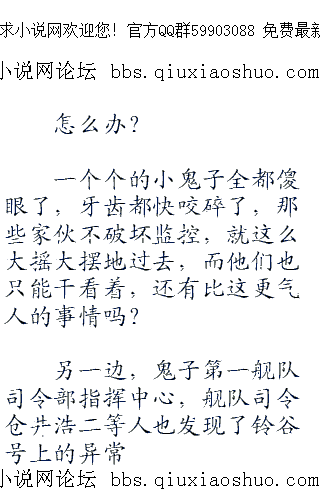 求小说网欢迎您! 官方QQ群59903088 免费最新
小说网论坛 bbs.qiuxiaoshuo.com
怎么办?
一个个的小鬼子全都傻
眼了，牙齿都快咬碎了，那
些家伙不破坏监控，就这么
大摇大摆地过去，而他们也
只能干看着，还有比这更气
人的事情吗?
另一边，鬼子第一舰队
司令部指挥中心，舰队司令
仓井浩二等人也发现了铃谷
号上的异常
小说网论坛 bbs.qiuxiaoshuo.com